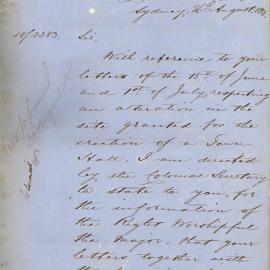 Sydney, 26th August 1858
58/3383.
Sir,
With reference to your
letters of the 15th of June
and 1st of July, respecting
an alteration in the
site granted for the
erection of a Town
Hall, I am directed
by the Colonial Secretary
to state to you, for
the information of
the Right Worshipful
the Mayor, that your
letters, together with